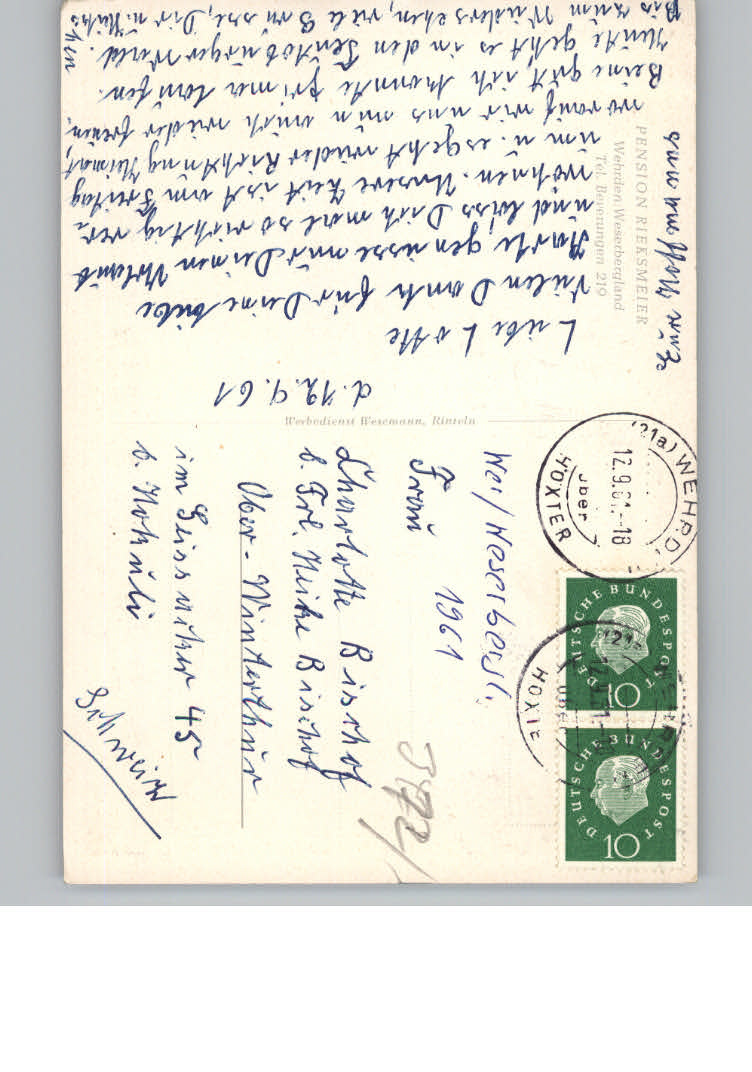 PENSION RIEKSMEIER
Wehrden Weserbergland
Tel. Beverungen 219
d. 12.9.61
Liebe Lotte
Vielen Dank für Deine liebe
Karte geniesse nur Deinen Urlaub
und lass Dich mal so richtig ver-
wöhnen. Unsere Zeit ist am Freitag
um u. es geht wieder Richtung Heimat,
worauf wir uns nun auch wieder freuen.
Beine gut, ich konnte prima laufen.
Heute geht es in den Teutoburger Wald.
Bis zum Wiedersehen, viele Grüsse, Dir u.
Eure Hoffmanns
Werbedienst Wesemann, Rinteln
Wer/Weserbergl.
1961
Frau
Charlotte Bischof
b. Frl. Heike Bischof
Ober-Winterthur
im Geissacker 45
b.
Schweiz
(21a) WEHRD
12.9.61.-18
über
HÖXTER
DEUTSCHE BUNDESPOST
10
DEUTSCHE BUNDESPOST
10